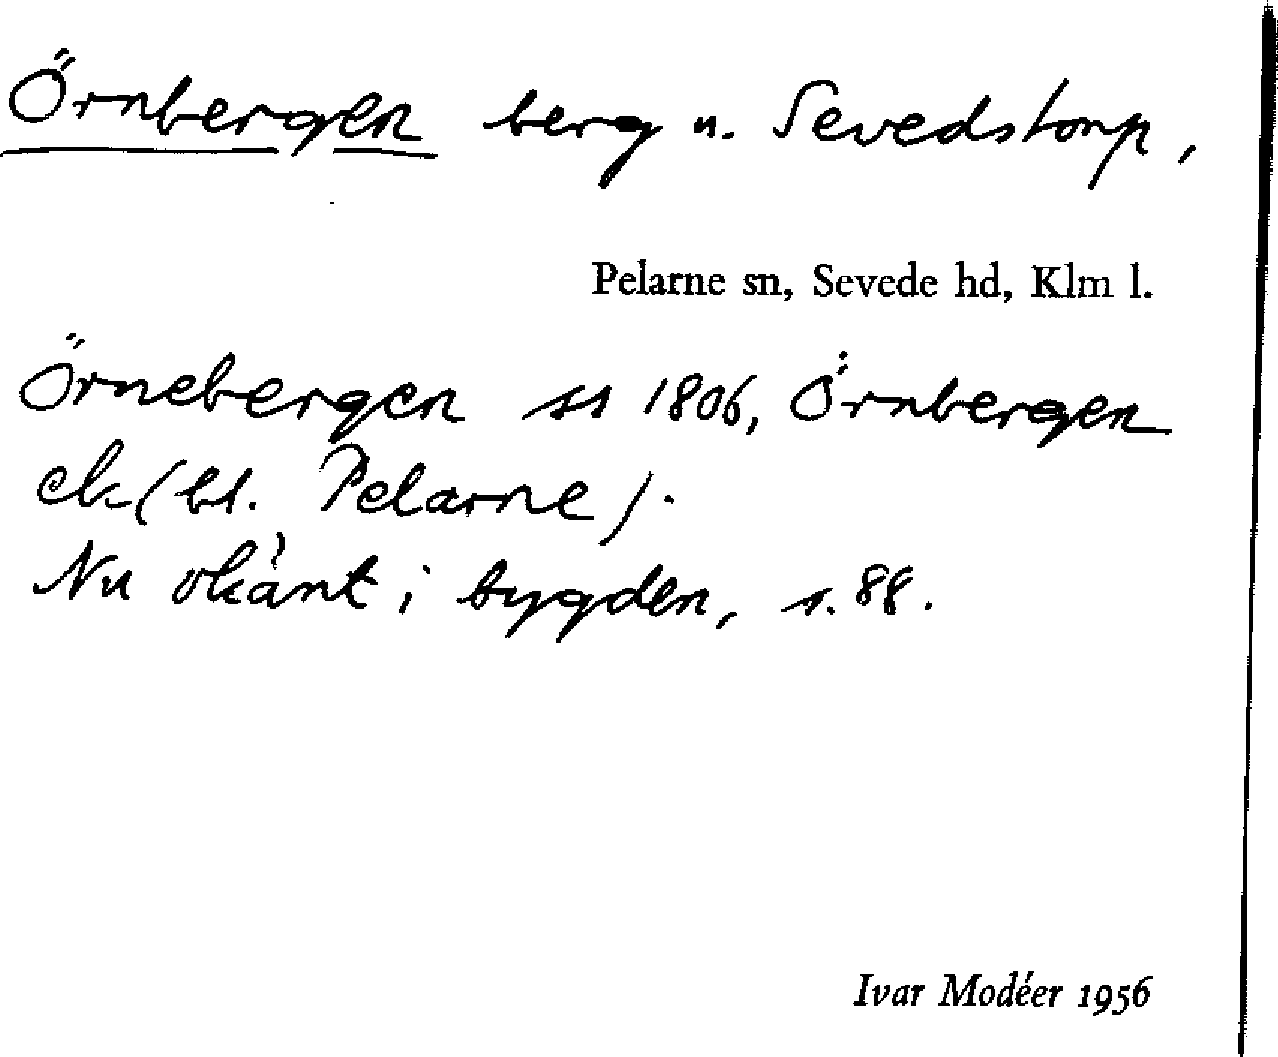 Örnbergen berg u. Sevedstorp,
Pelarne sn, Sevede hd, Klm l.
Örnebergen ss 1806, Örnbergen
ek (bl. Pelarne).
Nu okänt i bygden, s. 88.
Ivar Modéer 1956